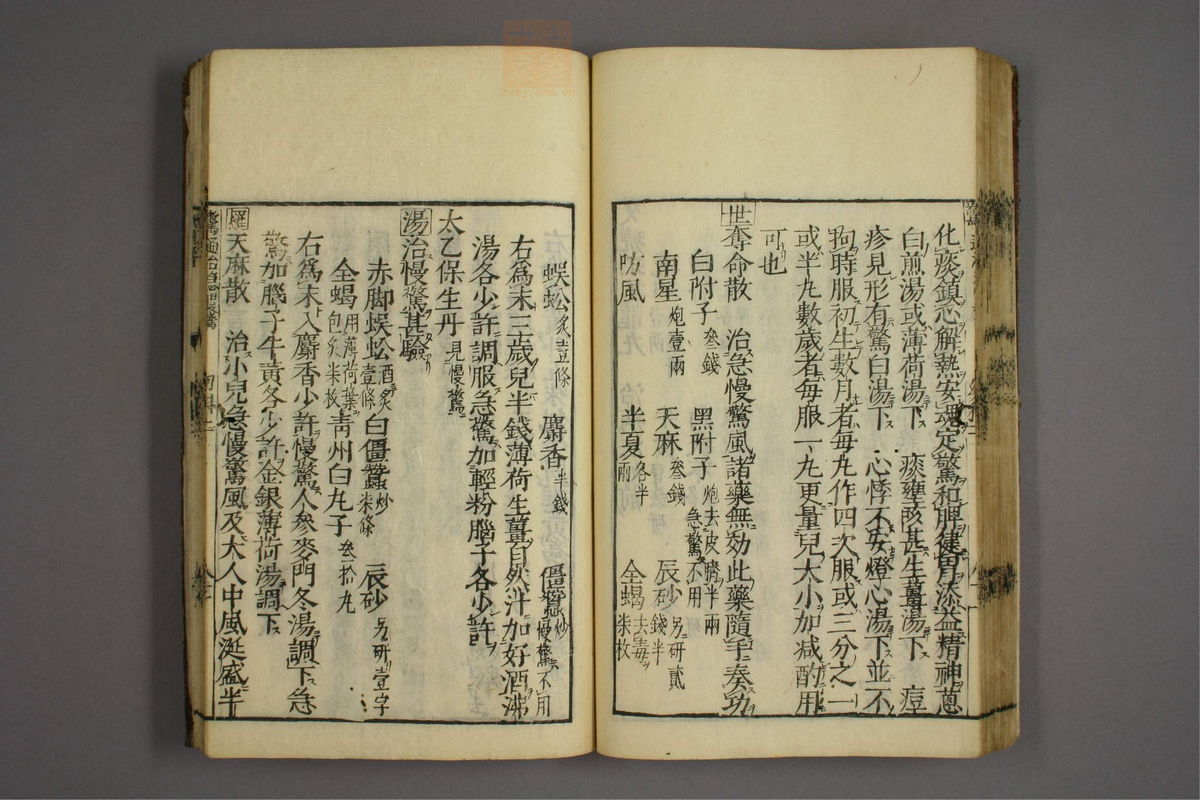 化痰鎮心解熱安魂定驚和脾健胃添益精神葱
白煎湯或薄荷湯下 痰壅欬甚生薑湯下 痘
疹見形有驚白湯下 心悸不安燈心湯下並不
拘時服初生數月者每九作四次服或三分之一
或半九數歲者每服一九更量兒大小加减酌用
可也
世奪命散 治急慢驚風諸藥無効此藥隨手奏功
白附子叄錢 黑附子炮去皮臍半兩急驚不用
南星炮壹兩 天麻叄錢 辰砂另研貳錢半
防風 半夏各半兩 全蝎去毒柒枚
蜈蚣炙壹條 麝香半錢 僵蠶炒慢驚不用
右爲末三歲兒半錢薄荷生薑自然汁加好酒沸
湯各少許調服急驚加輕粉腦子各少許
太乙保生丹見慢驚
湯治慢驚甚驗
赤脚蜈蚣酒炙壹條 白僵蠶炒柒條 辰砂另研壹字
全蝎用薄荷葉包炙柒枚 青州白九子叄拾九
右爲末入麝香少許慢驚人參麥門冬湯調下急
驚加腦子牛黄各少許金銀薄荷湯調下
羅天麻散 治小兒急慢驚風及大人中風涎盛半